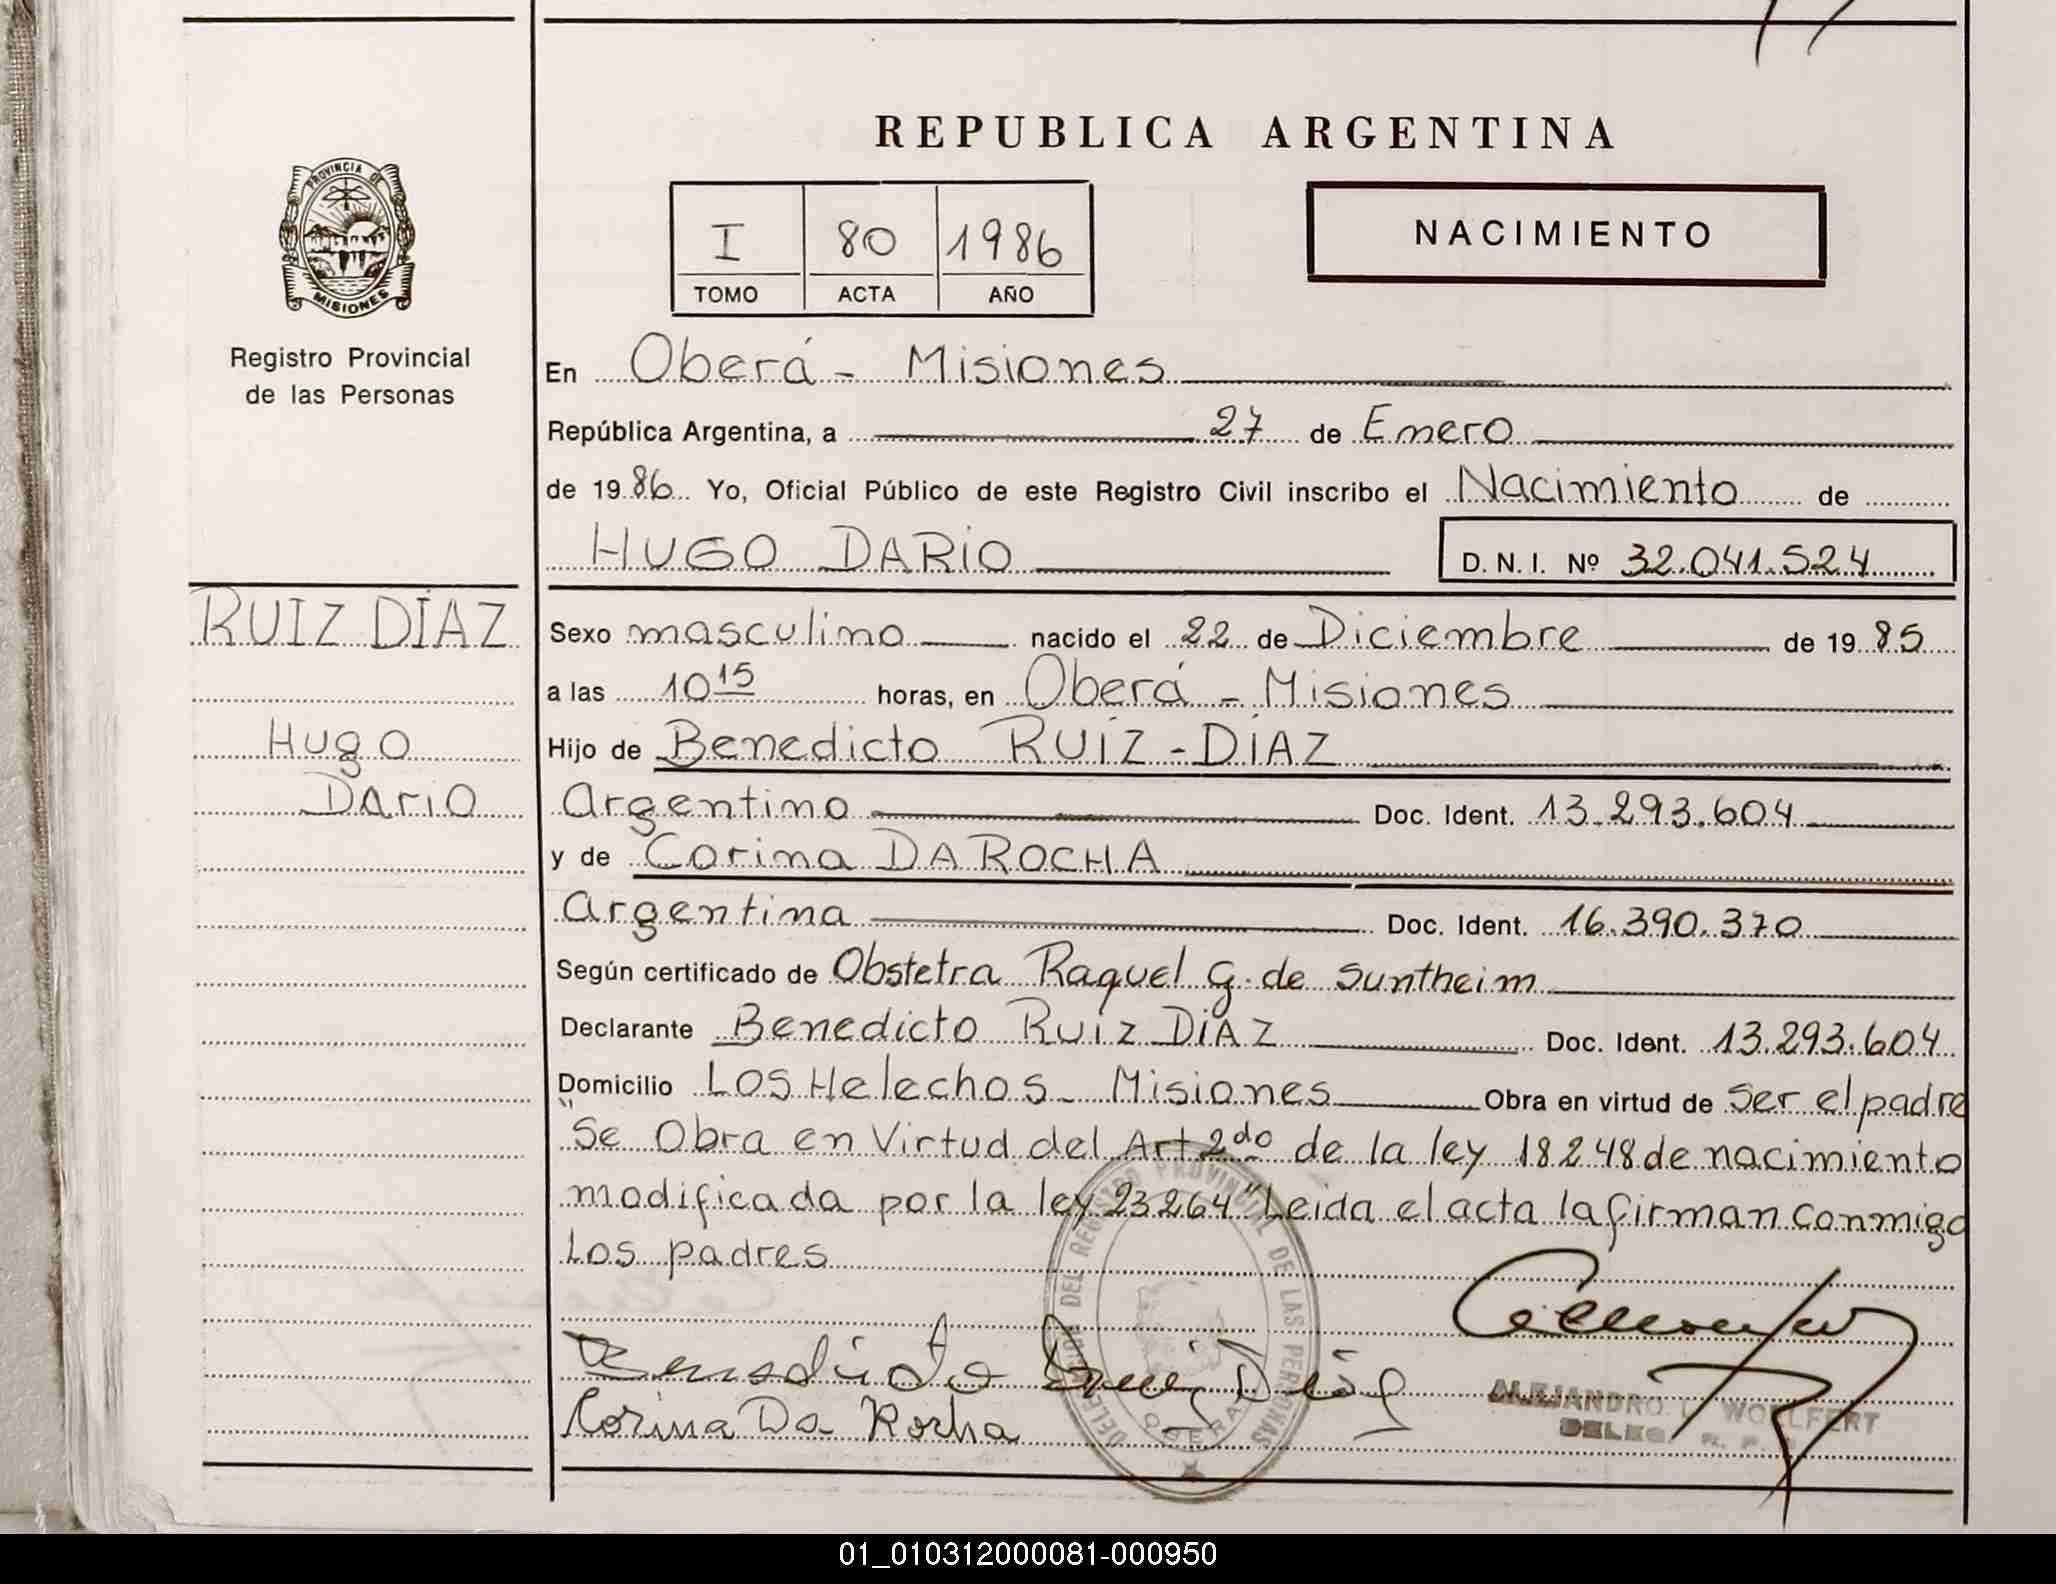 REPUBLICA ARGENTINA
PROVINCIA DE
MISIONES
Registro Provincial
de las Personas
I 80 1986
TOMO ACTA AÑO
NACIMIENTO
En Oberá - Misiones
República Argentina, a 27 de Enero
de 1986 Yo, Oficial Público de este Registro Civil inscribo el Nacimiento de
HUGO DARIO D. N. I. Nº 32.041.524
RUIZ DÍAZ
Hugo
Dario
Sexo masculino nacido el 22 de Diciembre de 1985
a las 10 15 horas, en Oberá - Misiones
Hijo de Benedicto RUIZ - DIAZ
Argentino Doc. Ident. 13.293.604
y de Corina DA ROCHA
Argentina Doc. Ident. 16.390.370
Según certificado de Obstetra Raquel G. de Suntheim
Declarante Benedicto RUIZ DIAZ Doc. Ident. 13.293.604
Domicilio Los Helechos - Misiones Obra en virtud de Ser el padre
"Se Obra en Virtud del Art 2do de la ley 18248 de nacimiento
modificada por la ley 23264" Leida el acta la firman conmigo
Los padres
DEL REGISTRO PROVINCIAL DE LAS PERSONAS
OBERA
Benedicto Ruiz Diaz
Corina Da Rocha
ALEJANDRO WOLLFERT
DELEG.
01_010312000081-000950